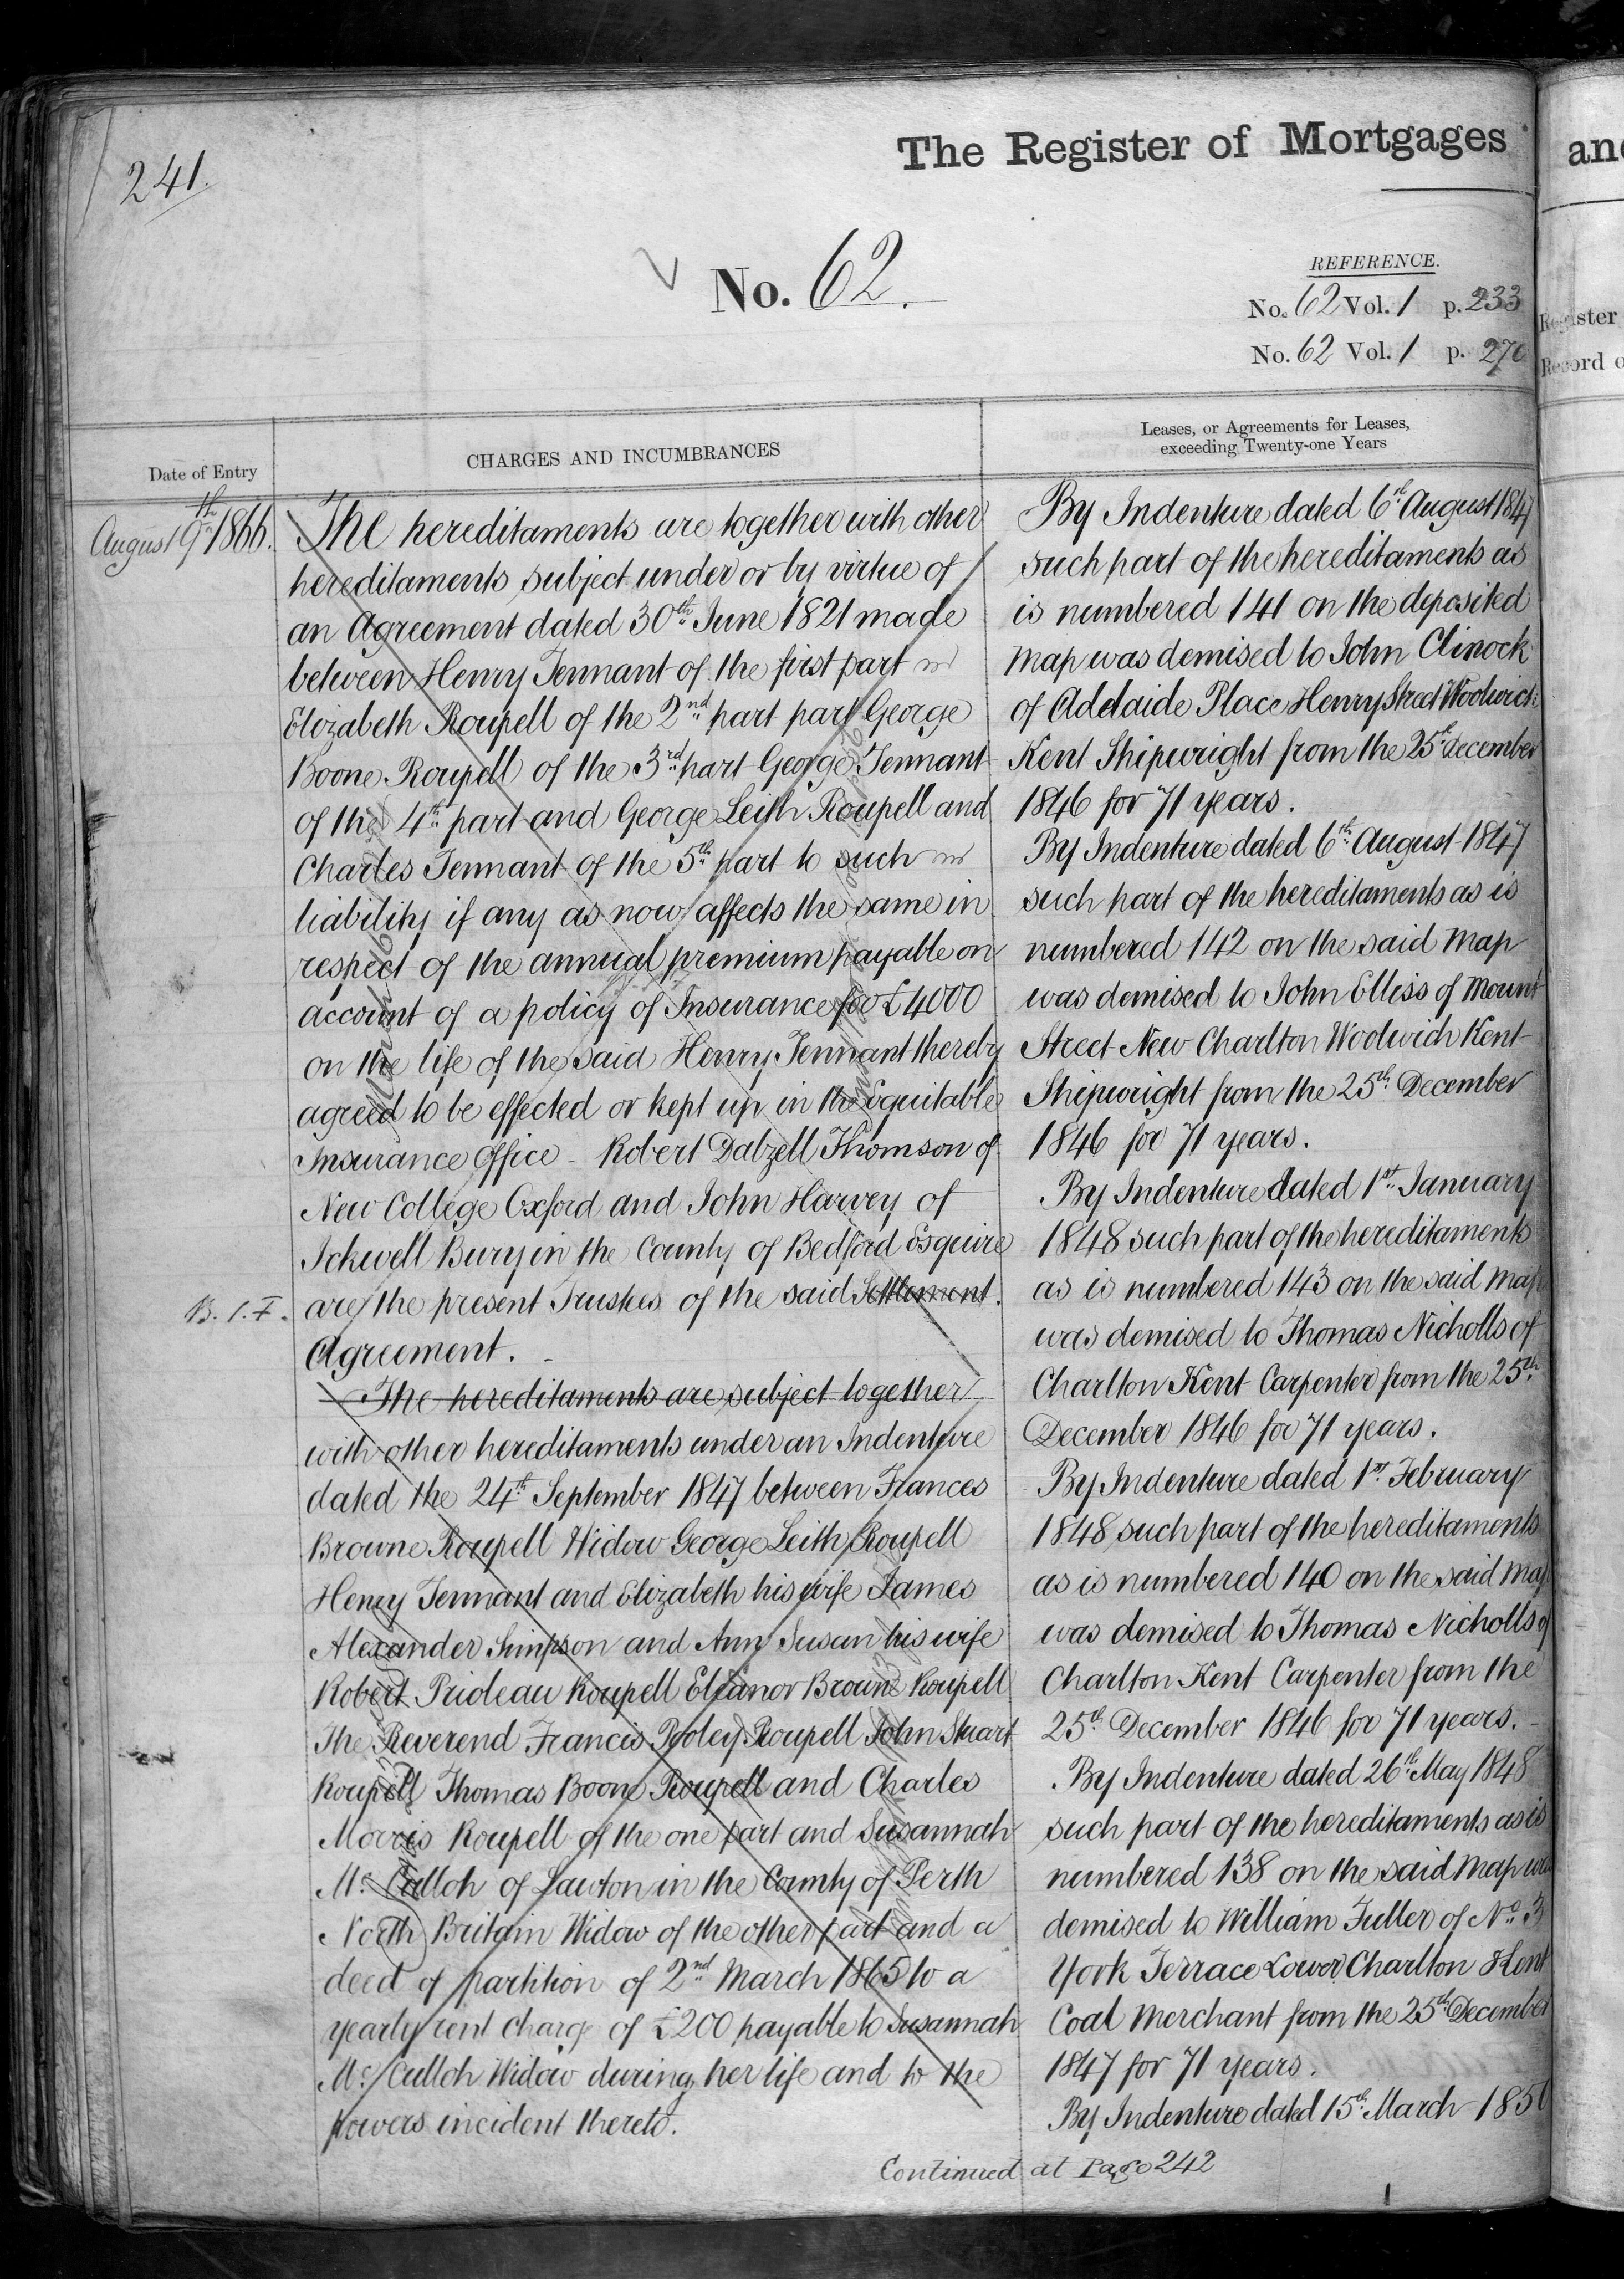 241.
The Register of Mortgages
No. 62.
REFERENCE.
No. 62 Vol. 1 p. 233
No. 62 Vol. 1 p. 270
Date of Entry
CHARGES AND INCUMBRANCES
Leases, or Agreements for Leases,
exceeding Twenty-one Years
August 9th 1866.
The hereditaments are together with other
hereditaments subject under or by virtue of
an Agreement dated 30th June 1821 made
between Henry Tennant of the first part
Elizabeth Roupell of the 2nd part part George
Boone Roupell of the 3rd part George Tennant
of the 4th part and George Leith Roupell and
Charles Tennant of the 5th part to such
liability if any as now affects the same in
respect of the annual premium payable on
account of a policy of Insurance for £4000
on the life of the said Henry Tennant thereby
agreed to be effected or kept up in the Equitable
Insurance Office - Robert Dalzell Thomson of
New College Oxford and John Harvey of
Ickwell Bury in the County of Bedford Esquire
are the present Trustees of the said Settlement.
B. I. F.
Agreement.
The hereditaments are subject together
with other hereditaments under an Indenture
dated the 24th September 1847 between Frances
Browne Roupell Widow George Leith Roupell
Henry Tennant and Elizabeth his wife James
Alexander Simpson and Ann Susan his wife
Robert Prioleau Roupell Eleanor Browne Roupell
The Reverend Francis Pooley Roupell John Stuart
Roupell Thomas Boone Roupell and Charles
Morris Roupell of the one part and Susannah
Mc. Culloh of Lawton in the County of Perth
North Britain Widow of the other part and a
deed of partition of 2nd March 1865 to a
yearly rent charge of £200 payable to Susannah
Mc. Culloh Widow during her life and to the
powers incident thereto.
By Indenture dated 6th August 1847
such part of the hereditaments as
is numbered 141 on the deposited
map was demised to John Clinock
of Adelaide Place Henry Street Woolwich
Kent Shipwright from the 25th December
1846 for 71 years.
By Indenture dated 6th August 1847
such part of the hereditaments as is
numbered 142 on the said map
was demised to John Elliss of Mount
Street New Charlton Woolwich Kent
Shipwright from the 25th December
1846 for 71 years.
By Indenture dated 1st January
1848 such part of the hereditaments
as is numbered 143 on the said map
was demised to Thomas Nicholls of
Charlton Kent Carpenter from the 25th
December 1846 for 71 years.
By Indenture dated 1st February
1848 such part of the hereditaments
as is numbered 140 on the said map
was demised to Thomas Nicholls of
Charlton Kent Carpenter from the
25th December 1846 for 71 years.
By Indenture dated 26th May 1848
such part of the hereditaments as is
numbered 138 on the said map was
demised to William Fuller of No. 3
York Terrace Lower Charlton Kent
Coal Merchant from the 25th December
1847 for 71 years.
By Indenture dated 15th March 1850
Continued at Page 242